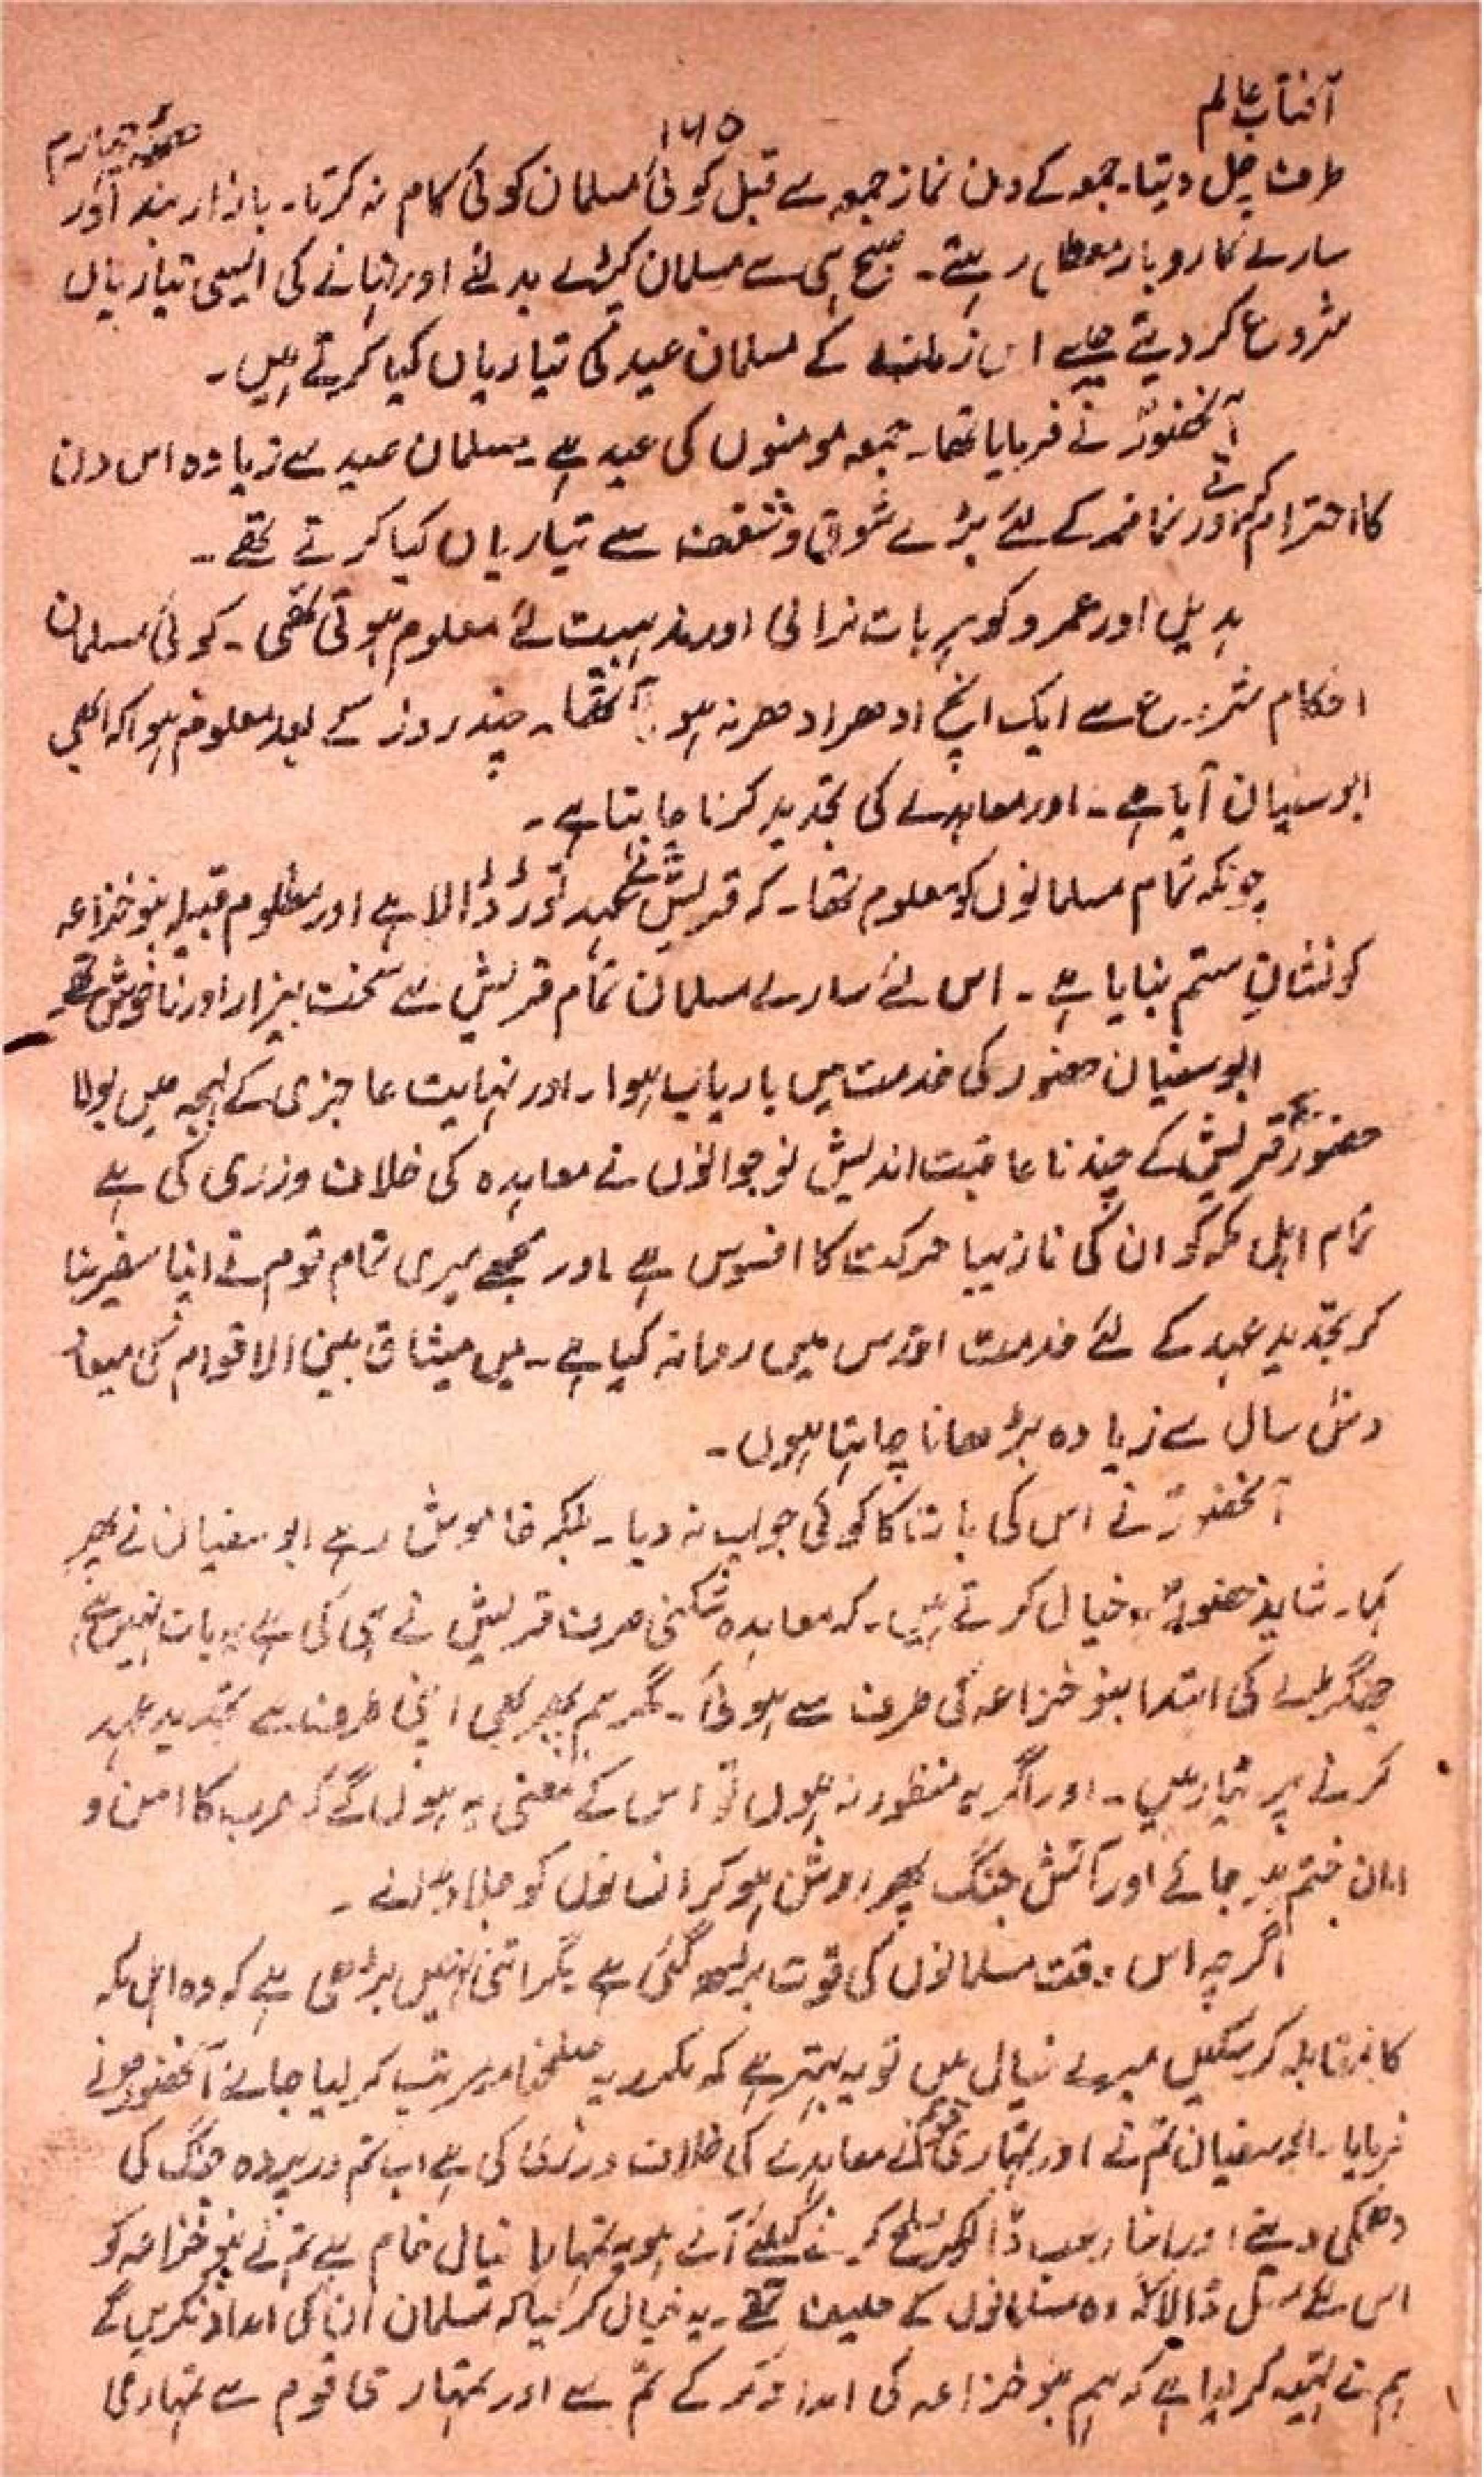 آفتاب عالم
۱۶۵
حصہ چہارم
طرف چل دیتا۔ جمعہ کے دن نماز جمعہ سے قبل کوئی مسلمان کوئی کام نہ کرتا۔ بازار بند اور
سارے کاروبار معطل رہتے۔ صبح ہی سے مسلمان کپڑے بدلنے اور نہانے کی ایسی تیاریاں
شروع کر دیتے جیسے اس زمانہ کے مسلمان عید کی تیاریاں کیا کرتے ہیں۔
آنحضورؐ نے فرمایا تھا۔ جمعہ مومنوں کی عید ہے۔ مسلمان عید سے زیادہ اس دن
کا احترام کرتے اور نماز کے لئے بڑے شوق و شغف سے تیاریاں کیا کرتے تھے۔
بدیل اور عمرو کو ہر بات نرالی اور مذہبیت لئے معلوم ہوتی تھی۔ کوئی مسلمان
احکام شرع سے ایک انچ ادھر ادھر نہ ہو تا تھا۔ چند روز کے بعد معلوم ہوا کہ ایلچی
ابوسفیان آیا ہے۔ اور معاہدے کی تجدید کرنا چاہتا ہے۔
چونکہ تمام مسلمانوں کو معلوم تھا۔ کہ قریش نے عہد توڑ ڈالا ہے اور مظلوم قبیلہ بنو خزاعہ
کو نشانِ ستم بنایا ہے۔ اس لئے سارے مسلمان تمام قریش سے سخت بیزار اور ناخوش تھے۔
ابوسفیان حضور کی خدمت میں باریاب ہوا۔ اور نہایت عاجزی کے لہجہ میں بولا
حضورؐ قریش کے چند نا عاقبت اندیش نوجوانوں نے معاہدہ کی خلاف ورزی کی ہے
تمام اہل مکہ کو ان کی نازیبا حرکت کا افسوس ہے۔ اور مجھے میری تمام قوم نے اپنا سفیر بنا
کر تجدید عہد کے لئے خدمت اقدس میں روانہ کیا ہے۔ میں میثاق بین الاقوام کی میعاد
دس سال سے زیادہ بڑھانا چاہتا ہوں۔
آنحضورؐ نے اس کی بات کا کوئی جواب نہ دیا۔ بلکہ خاموش رہے ابوسفیان نے پھر
کہا۔ شاید حضورؐ یہ خیال کرتے ہیں۔ کہ معاہدہ شکنی صرف قریش نے ہی کی ہے یہ بات نہیں ہے
جھگڑے کی ابتدا بنو خزاعہ کی طرف سے ہوئی۔ مگر ہم پھر بھی اپنی طرف سے تجدید عہد
کرنے پر تیار ہیں۔ اور اگر یہ منظور نہ ہوں تو اس کے معنی یہ ہوں گے کہ عرب کا امن و
امان ختم ہو جائے اور آتش جنگ پھر روشن ہو کر انسانوں کو جلا دے۔
اگرچہ اس وقت مسلمانوں کی قوت بڑھ گئی ہے مگر اتنی نہیں بڑھی ہے کہ وہ اہل مکہ
کا مقابلہ کر سکیں میرے خیال میں تو یہ بہتر ہے کہ مکرر یہ صلحنامہ مرتب کر لیا جائے آنحضورؐ نے
فرمایا۔ ابوسفیان تم نے اور تمہاری قوم نے معاہدے کی خلاف ورزی کی ہے اب تم در پردہ جنگ کی
دھمکی دیتے اور اپنا رعب ڈالکر صلح کرنے کیلئے آئے ہو یہ تمہارا خیال خام ہے تم نے بنو خزاعہ کو
اس لئے قتل ڈالا کہ وہ مسلمانوں کے حلیف تھے۔ یہ خیال کر لیا کہ مسلمان ان کی امداد نکریں گے
ہم نے تہیہ کر لیا ہے کہ ہم بنو خزاعہ کی امداد کر کے تم سے اور تمہاری قوم سے تمہاری